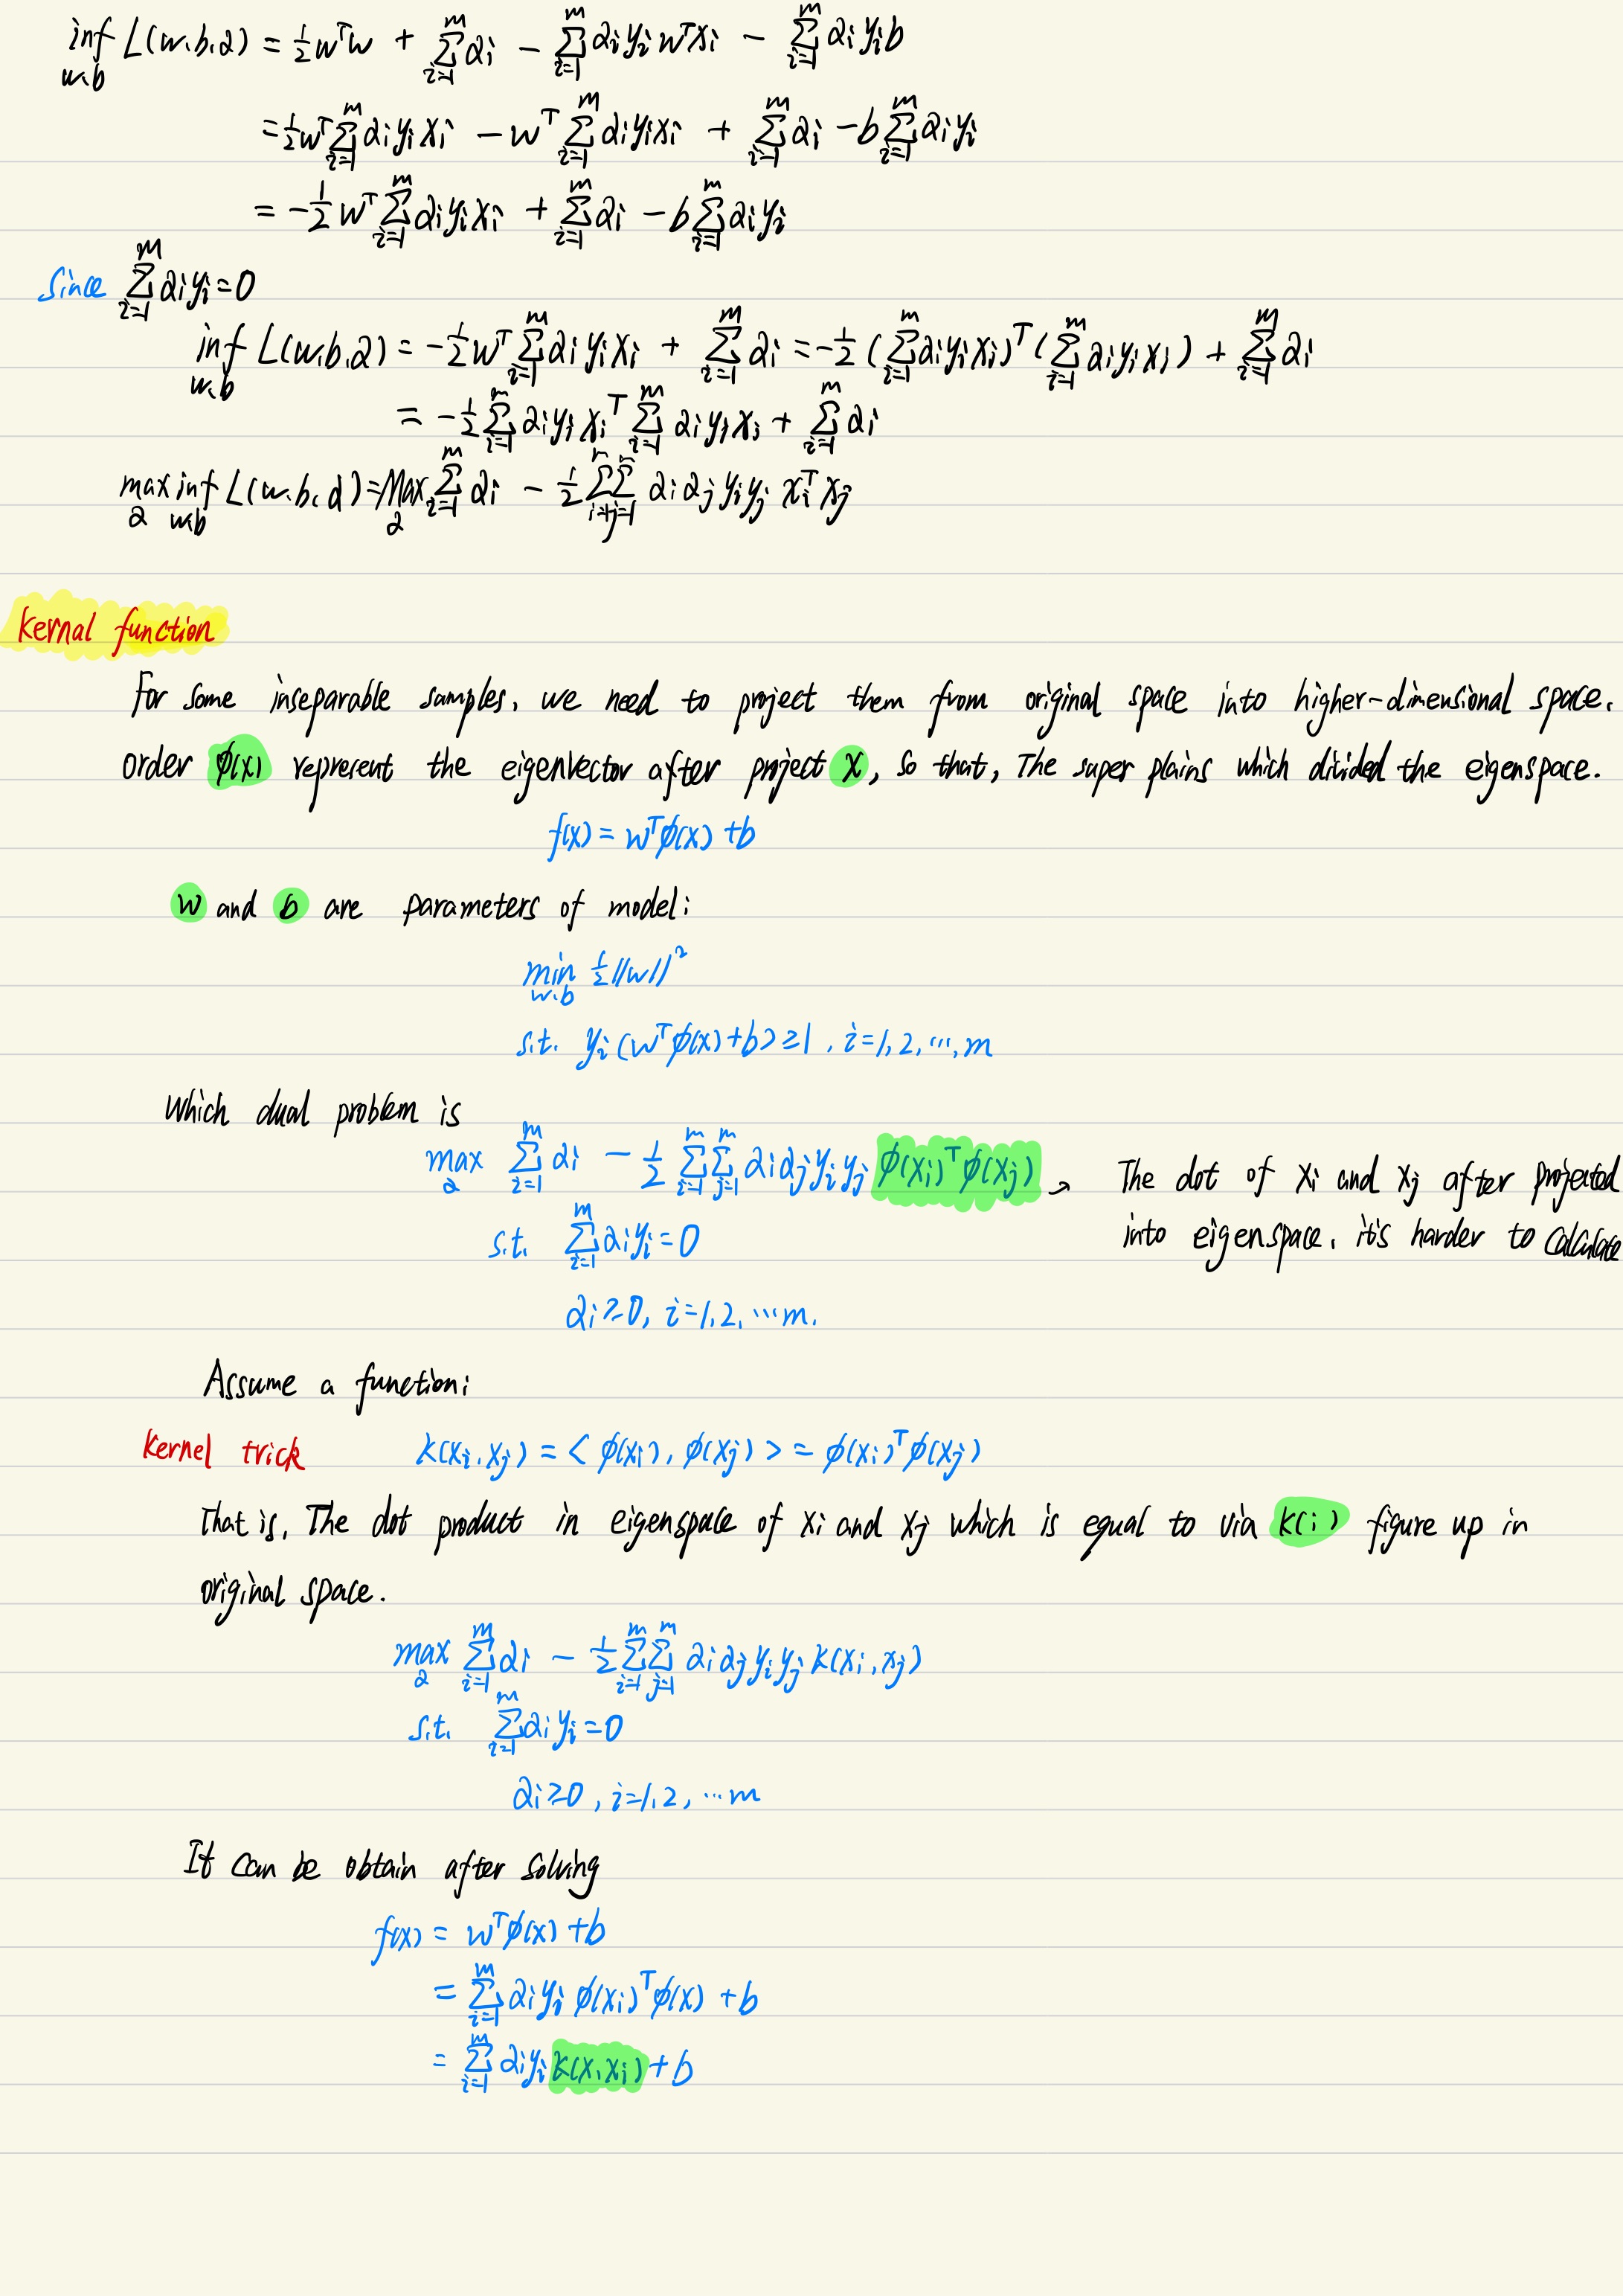 inf_{w,b} L(w,b,α) = ½wᵀw + Σ_{i=1}^m αi − Σ_{i=1}^m αiyiwᵀxi − Σ_{i=1}^m αiyib
= ½wᵀΣ_{i=1}^m αiyixi − wᵀΣ_{i=1}^m αiyixi + Σ_{i=1}^m αi − bΣ_{i=1}^m αiyi
= −½wᵀΣ_{i=1}^m αiyixi + Σ_{i=1}^m αi − bΣ_{i=1}^m αiyi
Since Σ_{i=1}^m αiyi=0
inf_{w,b} L(w,b,α) = −½wᵀΣ_{i=1}^m αiyixi + Σ_{i=1}^m αi = −½(Σ_{i=1}^m αiyixi)ᵀ(Σ_{i=1}^m αiyixi) + Σ_{i=1}^m αi
= −½Σ_{i=1}^m αiyixiᵀ Σ_{i=1}^m αiyixi + Σ_{i=1}^m αi
max_α inf_{w,b} L(w,b,α) = Max_α Σ_{i=1}^m αi − ½Σ_{i=1}^m Σ_{j=1}^m αiαjyiyjxiᵀxj
Kernal function
For some inseparable samples, we need to project them from original space into higher-dimensional space.
order φ(x) represent the eigenvector after project x, so that, The super plains which divided the eigenspace.
f(x) = wᵀφ(x) +b
w and b are parameters of model:
min_{w,b} ½||w||²
s.t. yi(wᵀφ(x)+b)≥1, i=1,2,…,m
Which dual problem is
max_α Σ_{i=1}^m αi − ½Σ_{i=1}^m Σ_{j=1}^m αiαjyiyj φ(xi)ᵀφ(xj) → The dot of xi and xj after projected
into eigenspace, it's harder to calculate
s.t. Σ_{i=1}^m αiyi=0
αi≥0, i=1,2,…m.
Assume a function:
Kernel trick k(xi,xj) = <φ(xi), φ(xj)> = φ(xi)ᵀφ(xj)
That is, The dot product in eigenspace of xi and xj which is equal to via k(;) figure up in
original space.
max_α Σ_{i=1}^m αi − ½Σ_{i=1}^m Σ_{j=1}^m αiαjyiyjk(xi,xj)
s.t. Σ_{i=1}^m αiyi=0
αi≥0, i=1,2,…m
It can be obtain after solving
f(x) = wᵀφ(x) +b
= Σ_{i=1}^m αiyiφ(xi)ᵀφ(x) +b
= Σ_{i=1}^m αiyik(x,xi)+b